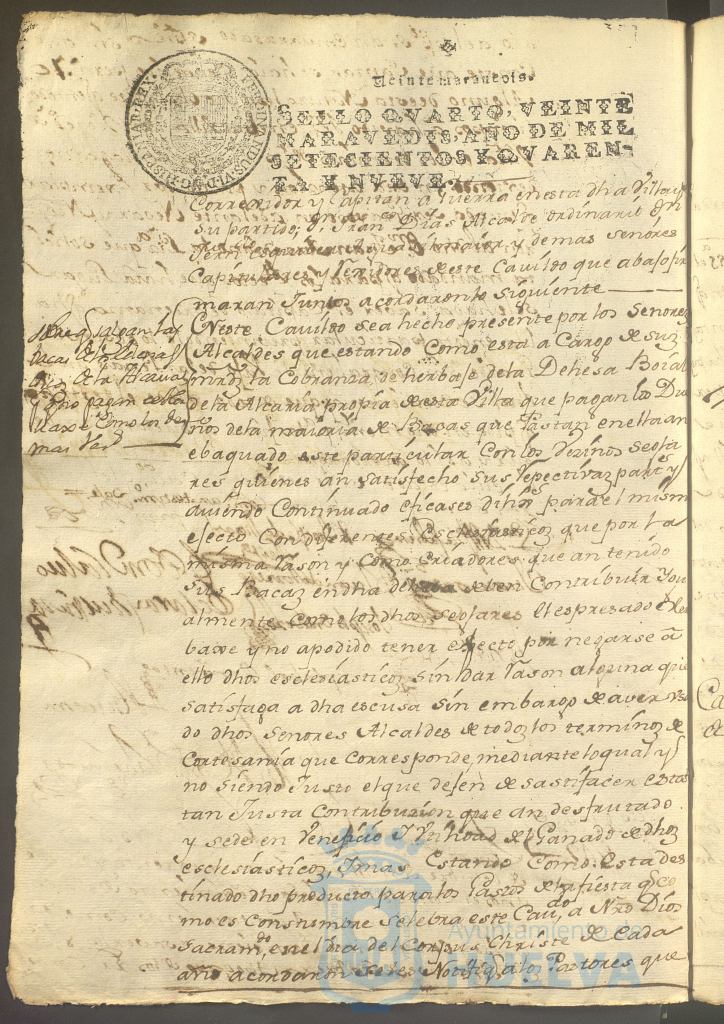 Veinte maravedis.
SELLO QVARTO, VEINTE
MARAVEDIS, AÑO DE MIL
SETECIENTOS Y QVAREN-
TA Y NVEVE.
Corregidor y Capitan a Guerra en esta dha Villa y
su partido; Dn Franco Dias Alcalde ordinario en
y demas señores
Capitulares y Rexidores de este Cavildo que abajo fir
maran Juntos acordaron lo siguiente
En este Cavildo sea hecho presente por los señores
Alcaldes que estando como esta a Cargo de sus
mrdz la Cobranza de herbaje de la Dehesa Boial
de la Alcaria propia de esta Villa que pagan los Du
eños de la maioria de Bacas que Pastan en ella an
ebaquado este particular Con los Vezinos Seqla
res quienes an satisfecho sus respectivaz partes y
aviendo Continuado eficases dilixs para el mismo
efecto Con diferentes Esclesiasticoz que por la
misma rason y como Criadores que an tenido
sus Bacaz en dha dehesa deben Contribuir Ygu
almente como los dhos seqlares el espresado
baxe y no apodido tener efecto por negarse a
ello dhos esclesiasticos sin dar rason alguna que
satisfaga a dha escusa sin embargo de aver
do dhos Señores Alcaldes de todoz los terminoz de
Cortesania que corresponde, mediante lo qual y
no siendo Justo el que dejen de sastifacer
tan Justa Contribuzion que an desfrutado
y sede en Veneficio y Vtilidad del Ganado de dhoz
esclesiasticoz, y mas Estando Como Esta des
tinado dho producto para los Gastos de la fiesta q Co
mo es Constumbre selebra este Cavdo a Nro Dios
Sacramdo, en el dia del Corpus Christe de Cada
año acordaron se les Notifiq a los Pastores que
sobre q salgan las
vacas de la dehesa
de la Alcaria
y
como los de
mas Vezs
FERDINANDUS VI D G HISPANIAR REX
Ayuntamiento de
HUELVA